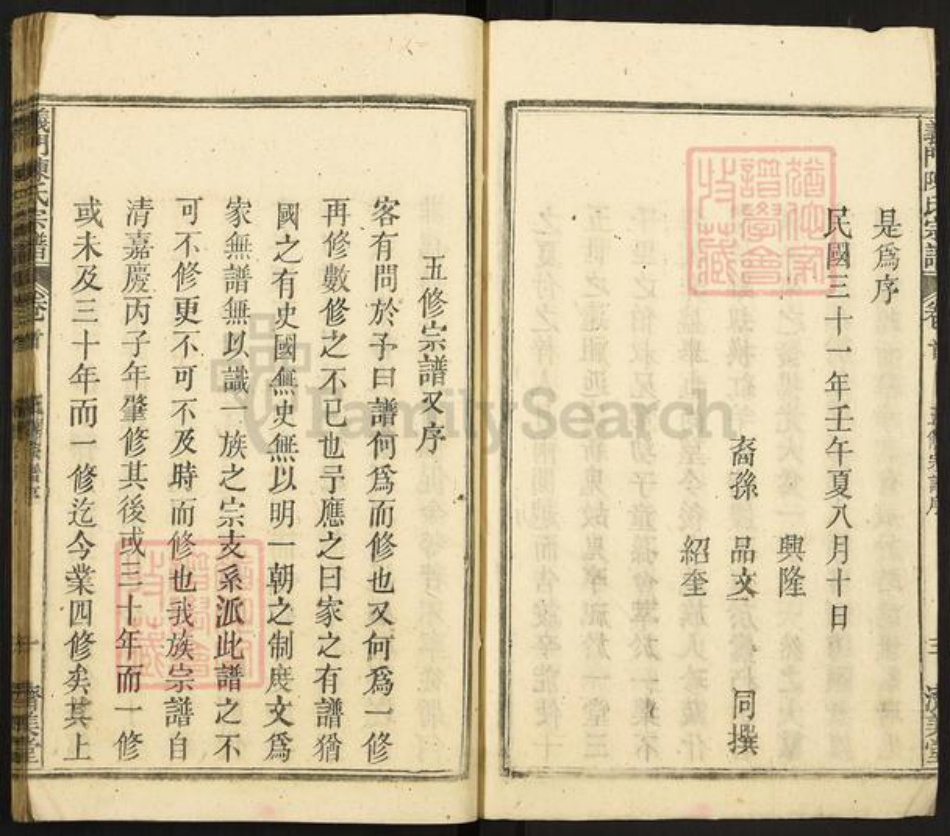 義門陳氏宗譜
卷首
五修宗譜序
三
濟美堂
是爲序
民國三十一年壬午夏八月十日
興隆
裔孫 品文 同撰
紹奎
五修宗譜又序
客有問於予曰譜何爲而修也又何爲一修
再修數修之不已也予應之曰家之有譜猶
國之有史國無史無以明一朝之制度文爲
家無譜無以識一族之宗支系派此譜之不
可不修更不可不及時而修也我族宗譜自
清嘉慶丙子年肇修其後或三十年而一修
或未及三十年而一修迄今業四修矣其上
義門陳氏宗譜
卷首
一
濟美堂
FamilySearch